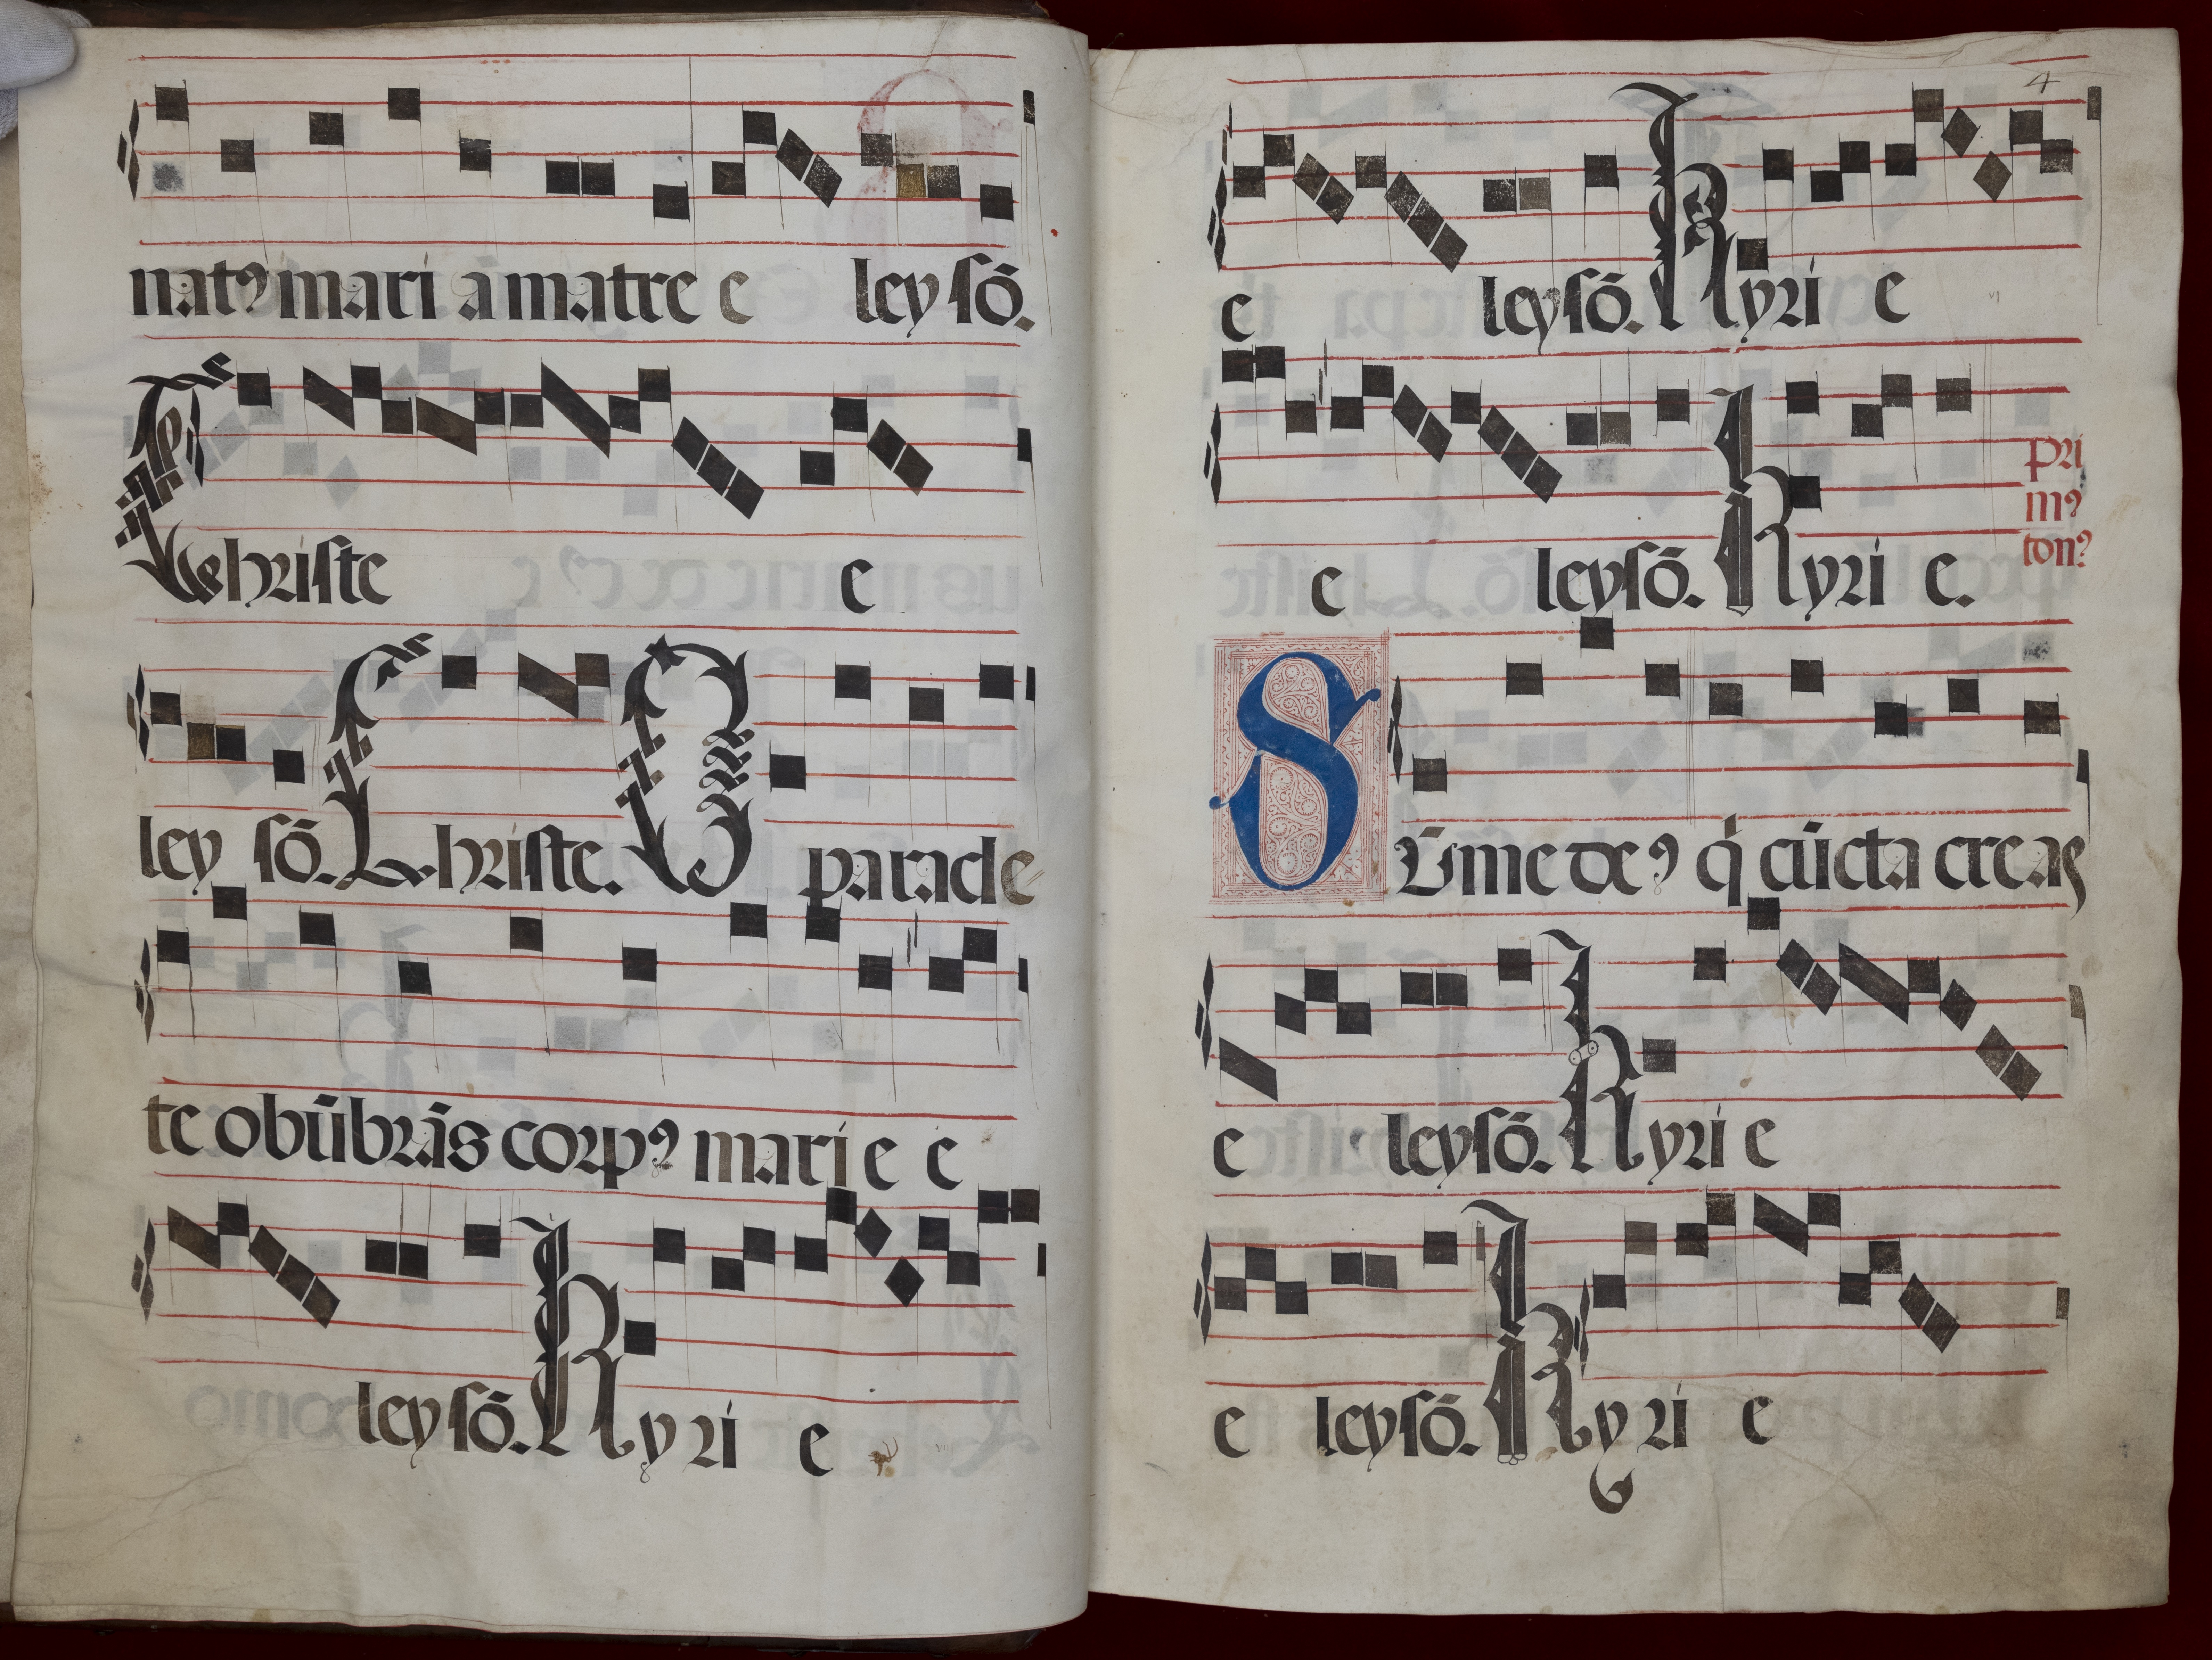 natꝰ mari a matre e leysō.
Christe e
ley sō. Christe. O paracle
te obūbrās corpꝰ marie e
leysō. Kyri e
4
e leysō. Kyri e
e leysō. Kyri e.
pri
mꝰ
tonꝰ
Sūme deꝰ q cūcta creas
e leysō. Kyri e
e leysō. Kyri e